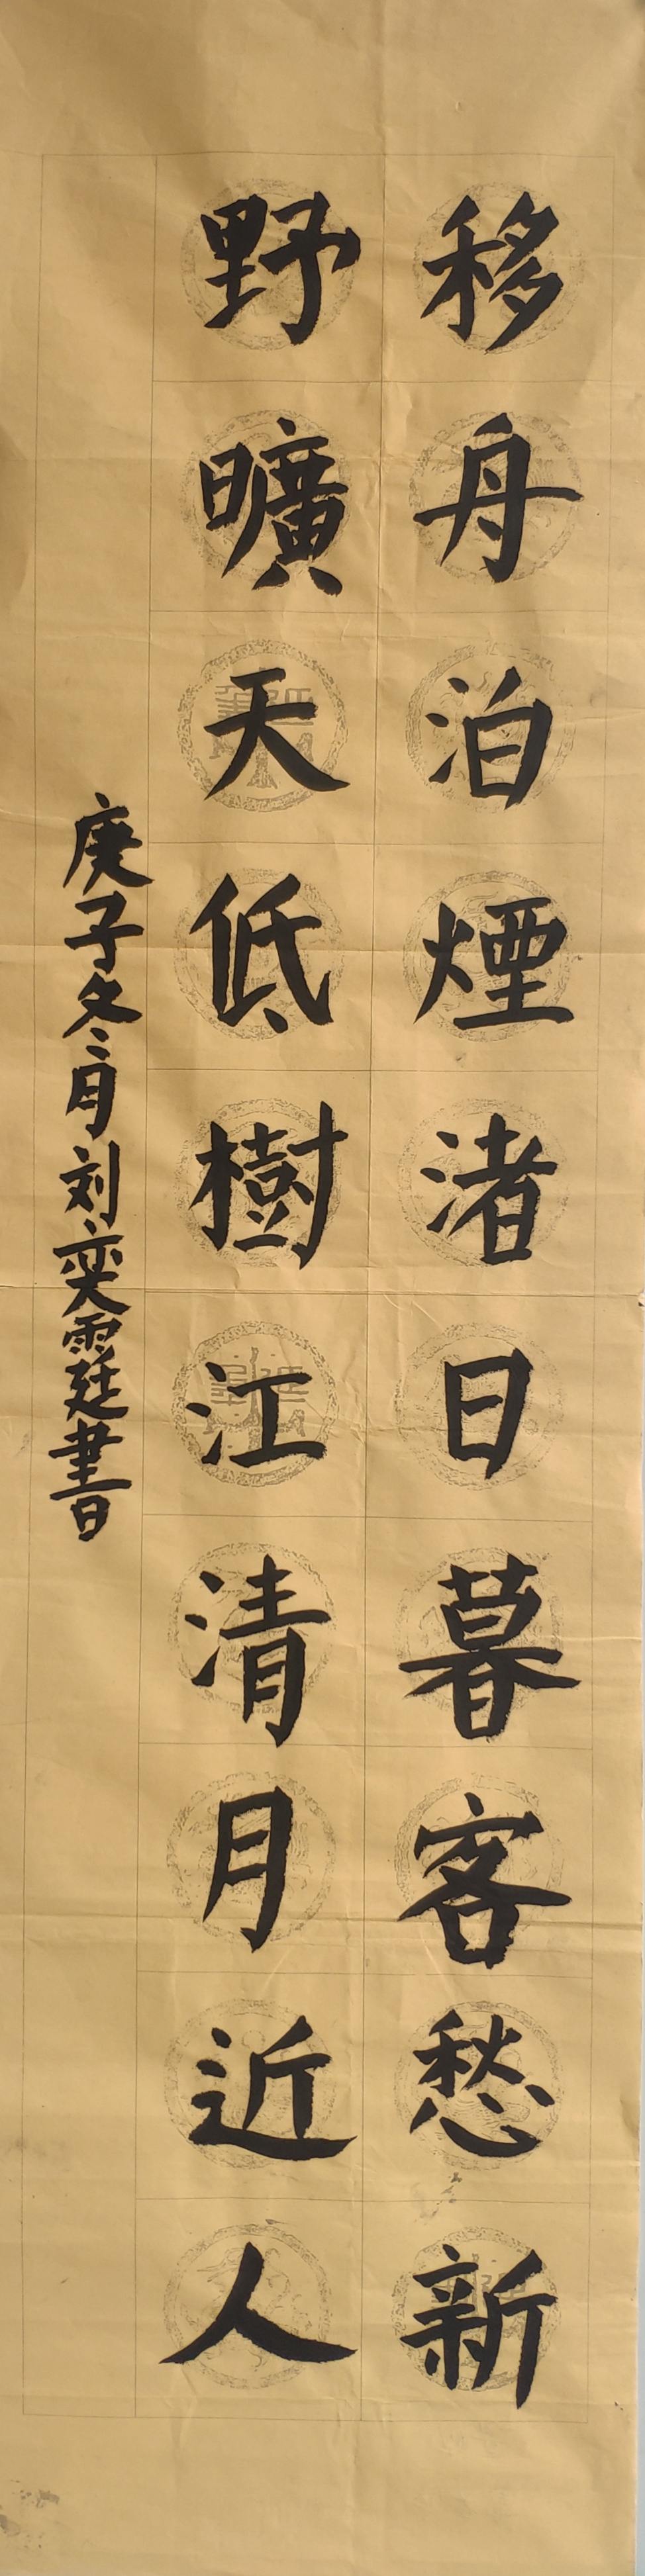 移舟泊煙渚日暮客愁新
野曠天低樹江清月近人
庚子冬月刘奕霆書